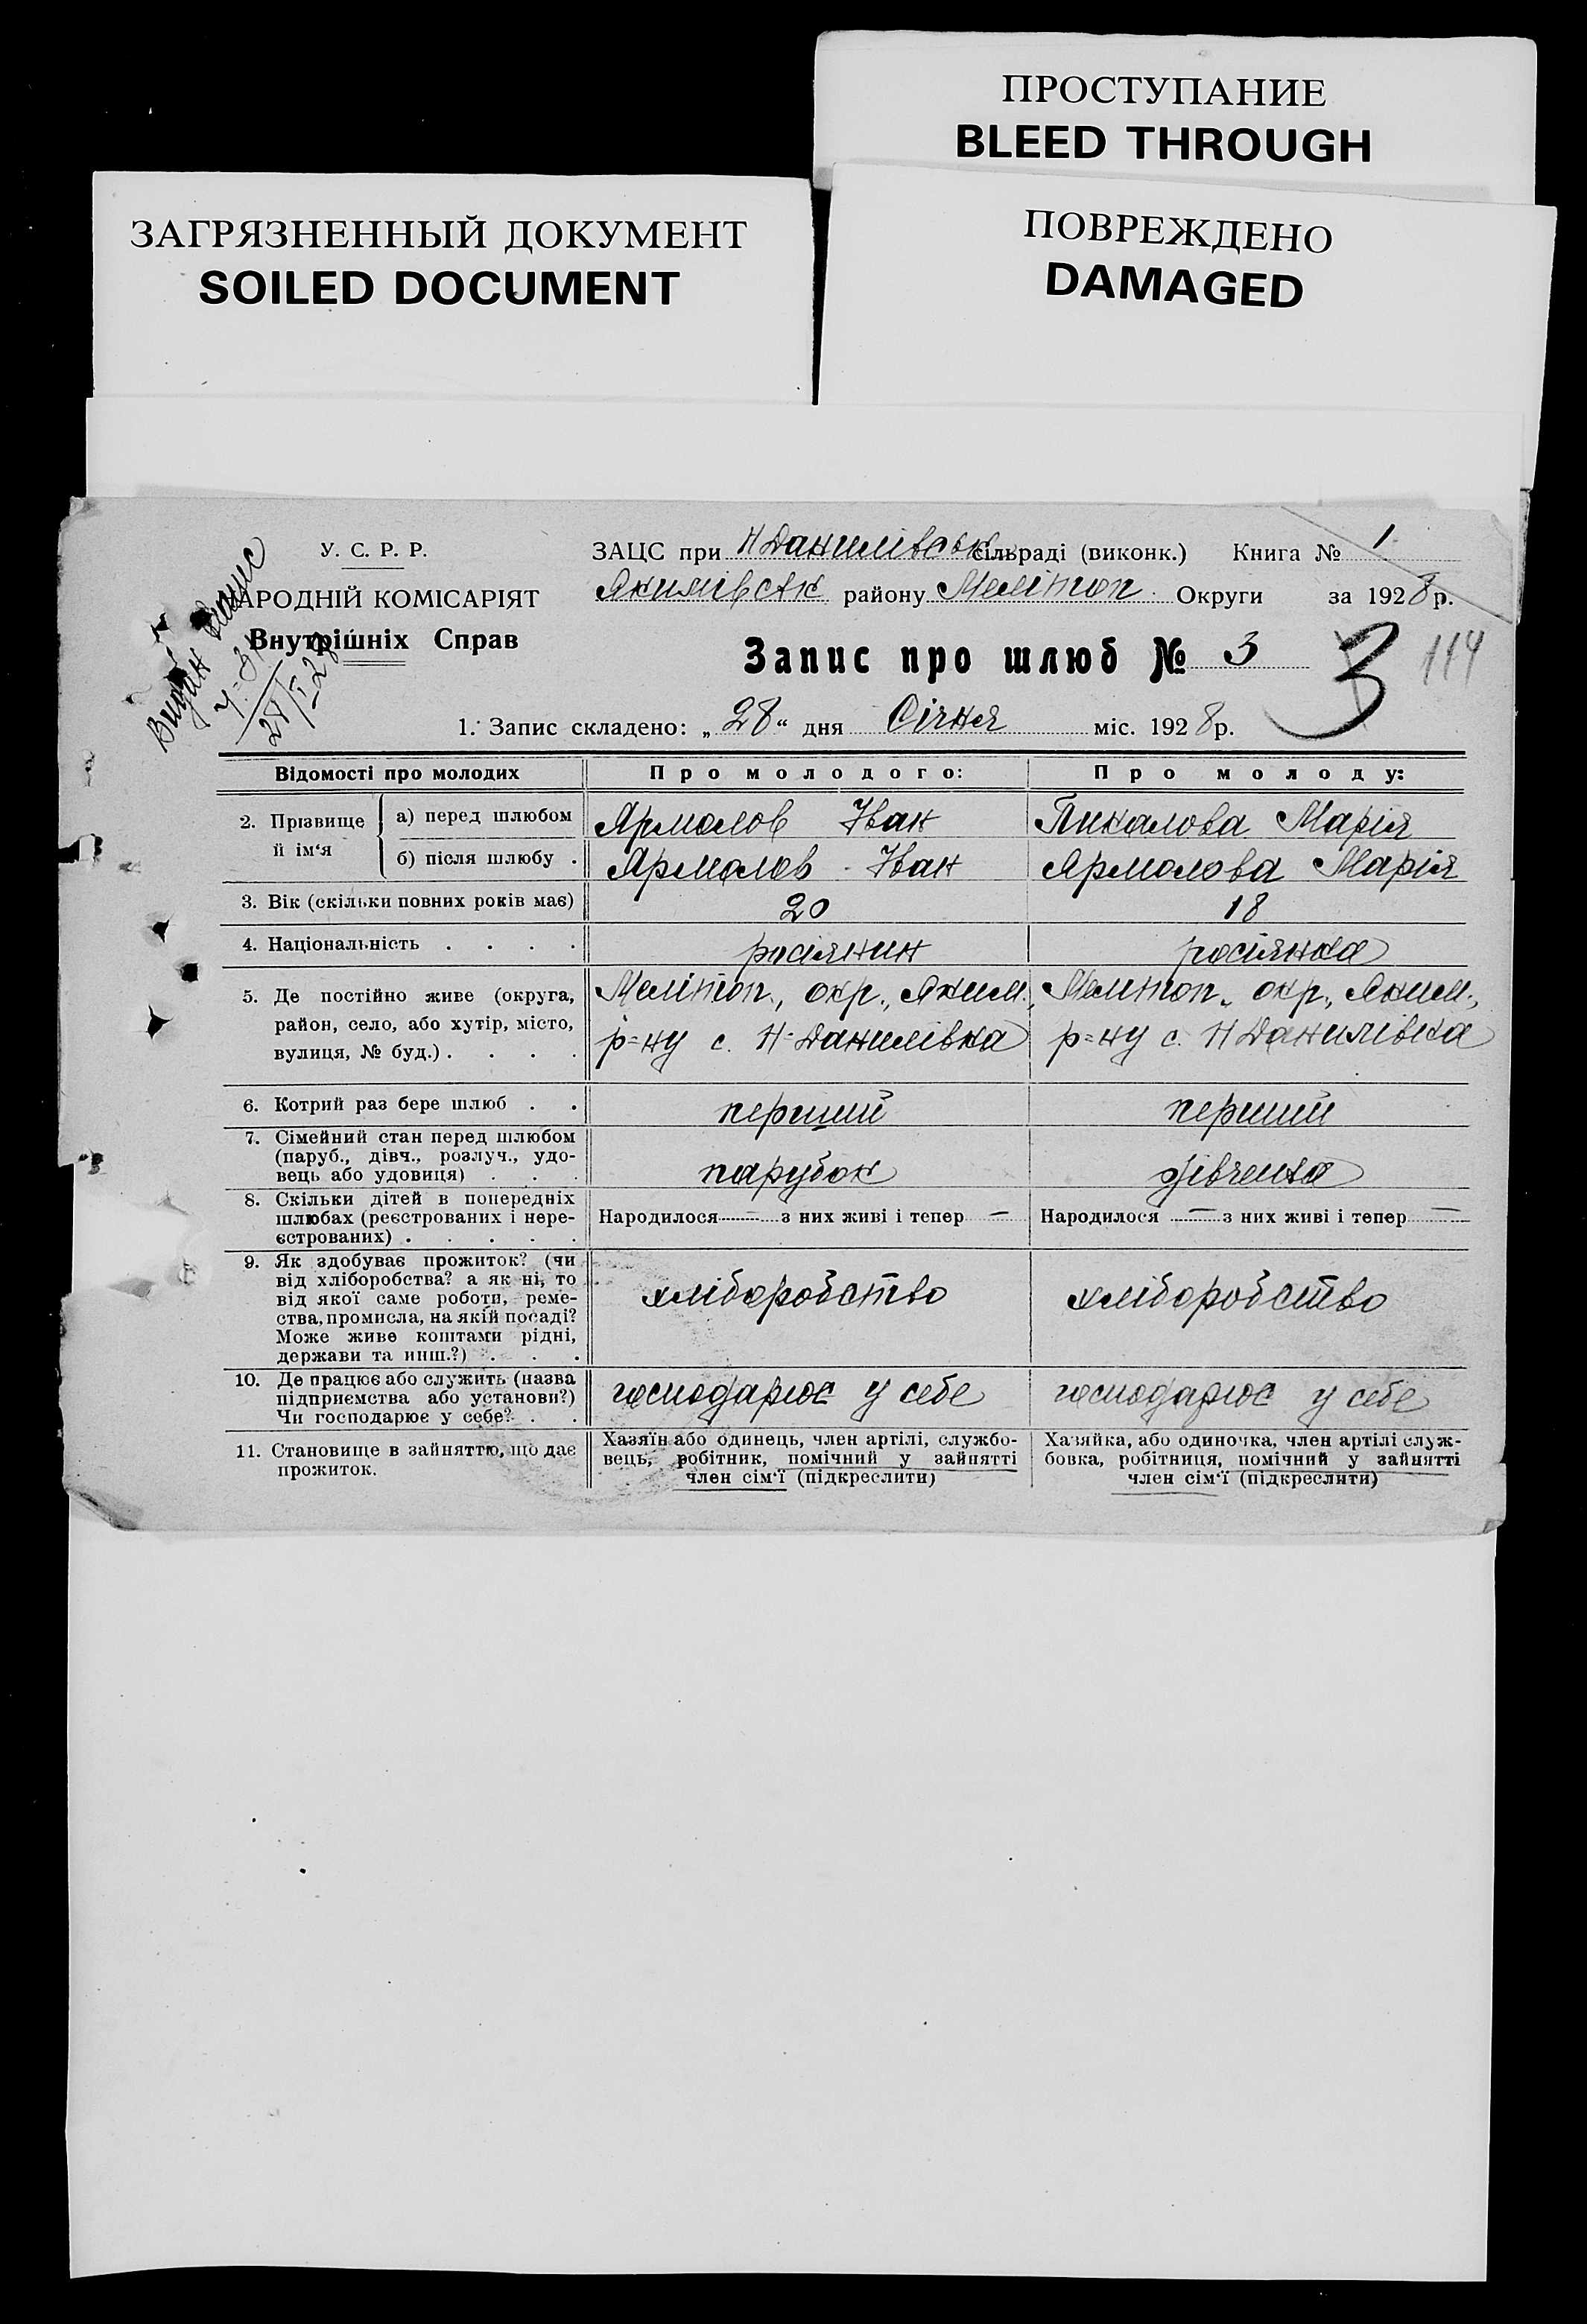 ПРОСТУПАНИЕ
BLEED THROUGH
ЗАГРЯЗНЕННЫЙ ДОКУМЕНТ
SOILED DOCUMENT
ПОВРЕЖДЕНО
DAMAGED
У. С. Р. Р.
НАРОДНІЙ КОМІСАРІЯТ
Внутрішніх Справ
28/I 28
ЗАЦС при Н Данилівськ сільраді (виконк.) Книга № 1
Якимівськ району Мелітоп. Округи за 1928 р.
Запис про шлюб № 3
3 114
1. Запис складено: „28“ дня Січня міс. 1928 р.
Відомості про молодих Про молодого: Про молоду:
2. Прізвище й ім‘я
а) перед шлюбом Ярмолов Іван Пикалова Марія
б) після шлюбу . Ярмолов Іван Ярмолова Марія
3. Вік (скільки повних років має) 20 18
4. Національність . . . . росіянин росіянка
5. Де постійно живе (округа, Меліtоп., окр., Яким., Меліtоп., окр., Яким.,
район, село, або хутір, місто, р=ну с. Н-Данилівка р=ну с. Н Данилівка
вулиця, № буд.) . . . .
6. Котрий раз бере шлюб . . перший перший
7. Сімейний стан перед шлюбом
(паруб., дівч., розлуч., удо-
вець або удовиця) . . . парубок дівченка
8. Скільки дітей в попередніх
шлюбах (реєстрованих і нере- Народилося — з них живі і тепер — Народилося — з них живі і тепер —
єстрованих) . . . . .
9. Як здобуває прожиток? (чи
від хліборобства? а як ні, то
від якої саме роботи, реме- хліборобство хліборобство
ства, промисла, на якій посаді?
Може живе коштами рідні,
держави та инш.?) . . .
10. Де працює або служить (назва
підприємства або установи?) господарює у себе господарює у себе
Чи господарює у себе? . .
11. Становище в зайняттю, що дає
прожиток.
Хазяїн або одинець, член артілі, службо-
вець, робітник, помічний у зайнятті
член сім‘ї (підкреслити)
Хазяйка, або одиночка, член артілі служ-
бовка, робітниця, помічний у зайнятті
член сім‘ї (підкреслити)